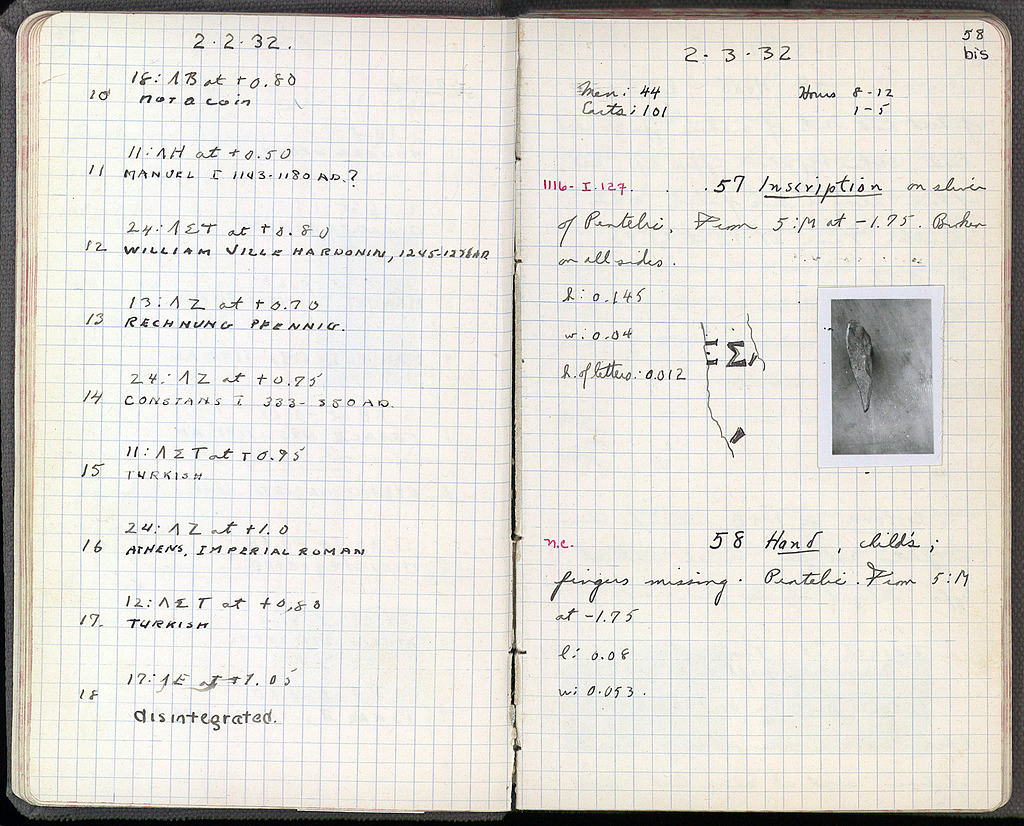 2·2·32.
18: ΛB at +0.80
10 not a coin
11: ΛH at +0.50
11 MANUEL I 1143-1180 AD.?
24: ΛΣT at +0.80
12 WILLIAM VILLE HARDONIN, 1245-
13: ΛZ at +0.70
13 RECHNUNG PFENNIG.
24: ΛZ at +0.75
14 CONSTANS I 333-350 AD.
11: ΛΣT at +0.95
15 TURKISH
24: ΛZ at +1.0
16 ATHENS, IMPERIAL ROMAN
12: ΛΣT at +0,80
17. TURKISH
17: ΛE at +1.05
18
disintegrated.
58
bis
2·3·32
Men: 44 Hours 8-12
Carts: 101 1-5
1116- I.127. . . .57 Inscription on sliver
of Pentelic. From 5:M at -1.75. Broken
on all sides.
h: 0.145
w: 0.04
h. of letters: 0.012
Σ
n.c. 58 Hand, child's;
fingers missing. Pentelic. From 5:M
at -1.75
l: 0.08
w: 0.053.